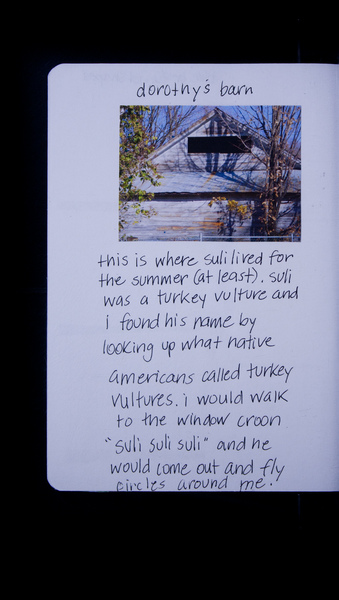 dorothy's barn
this is where suli lived for
the summer (at least). suli
was a turkey vulture and
i found his name by
looking up what native
americans called turkey
vultures. i would walk
to the window croon
"suli suli suli" and he
would come out and fly
circles around me.